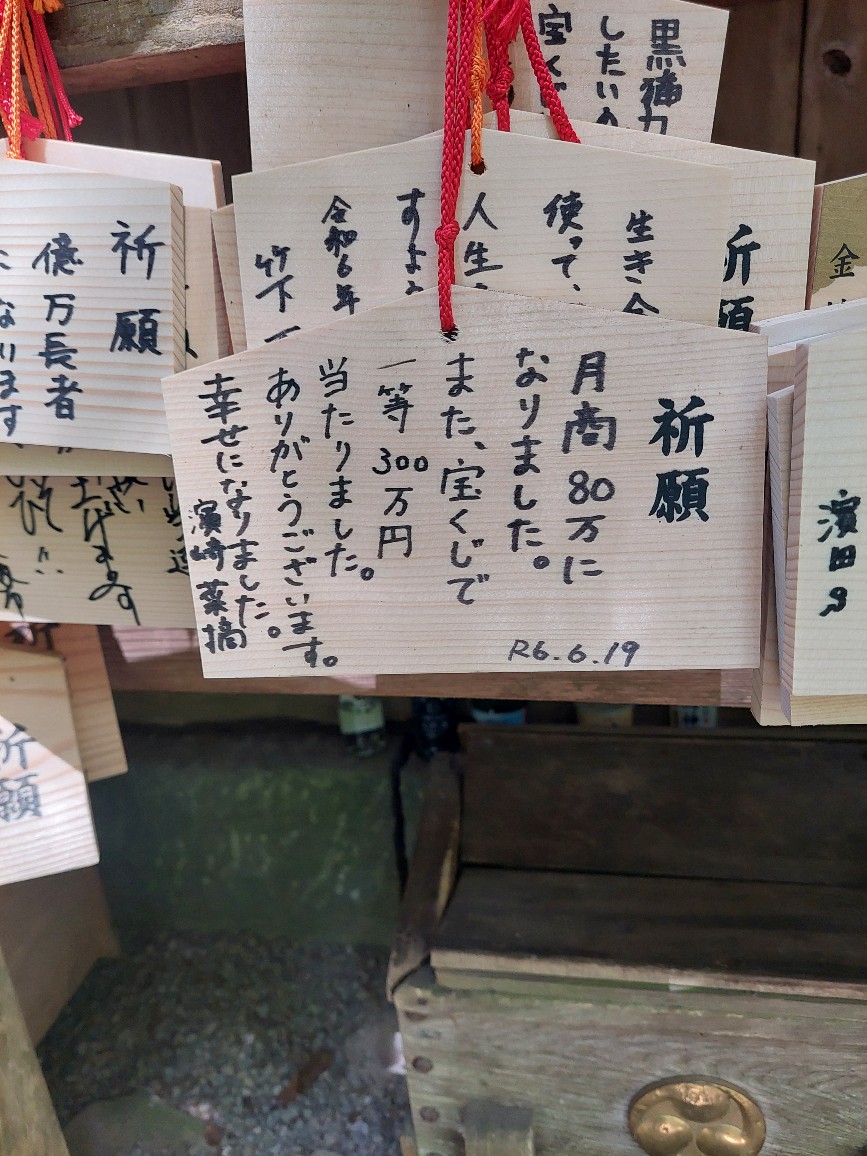 祈願
月商80万に
なりました。
また、宝くじで
一等300万円
当たりました。
ありがとうございます。
幸せになりました。
濱崎菜摘
R6.6.19
黒猫
したい
宝くじ
祈願
生き
使って、
人生
すよ
令和6年
竹下
祈願
億万長者
なります
金
濱田
祈願